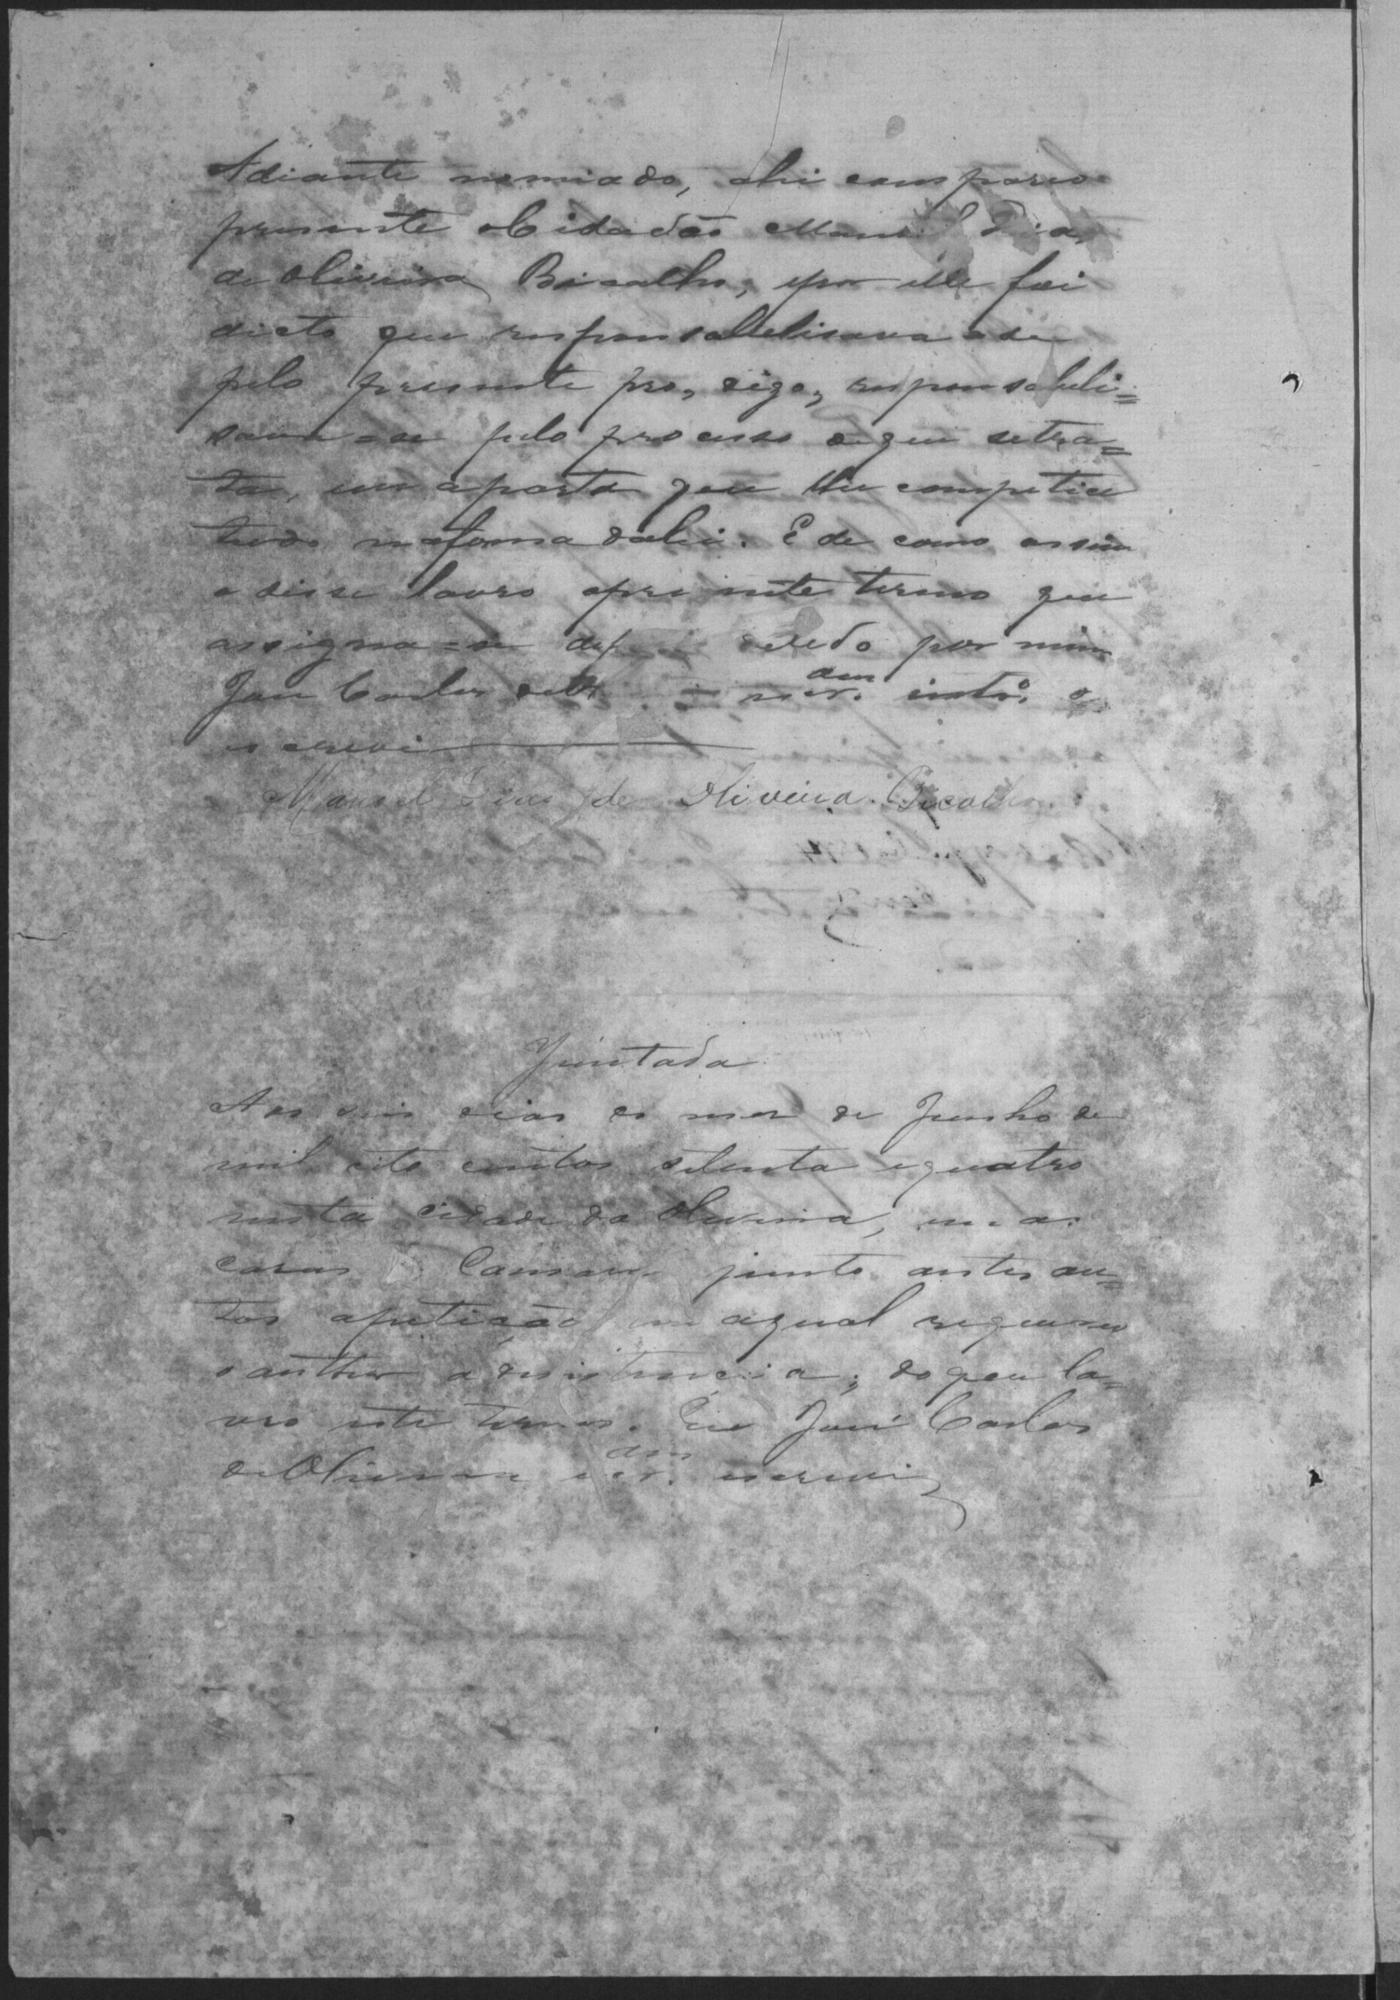 Adiante nomiado, ahi compareo
presente o Cidadão Manoel Dias
de Oliveira Bicalho, e por elle foi
dicto que responsabelisava-se
pelo presente pro, digo, responsabeli=
sava-se pelo processo de que setra=
ta, em a parte que lhe competia
tudo na forma da lei. E de como assim
o disse lavro o presente termo que
assigna-se dep lido por mim
José Carlos de am int.º o
escrevi
Manoel Dias de Oliveira Bicalho
Juntada
Aos seis dias do mes de Junho de
mil oito centos setenta e quatro
nesta Cidade da Oliveira, em a
casas Camara junto a estes au=
tos a petição em a qual requereu
o author a desistencia; do que la=
vro este termo. Eu José Carlos
de Oliveira am escrevi